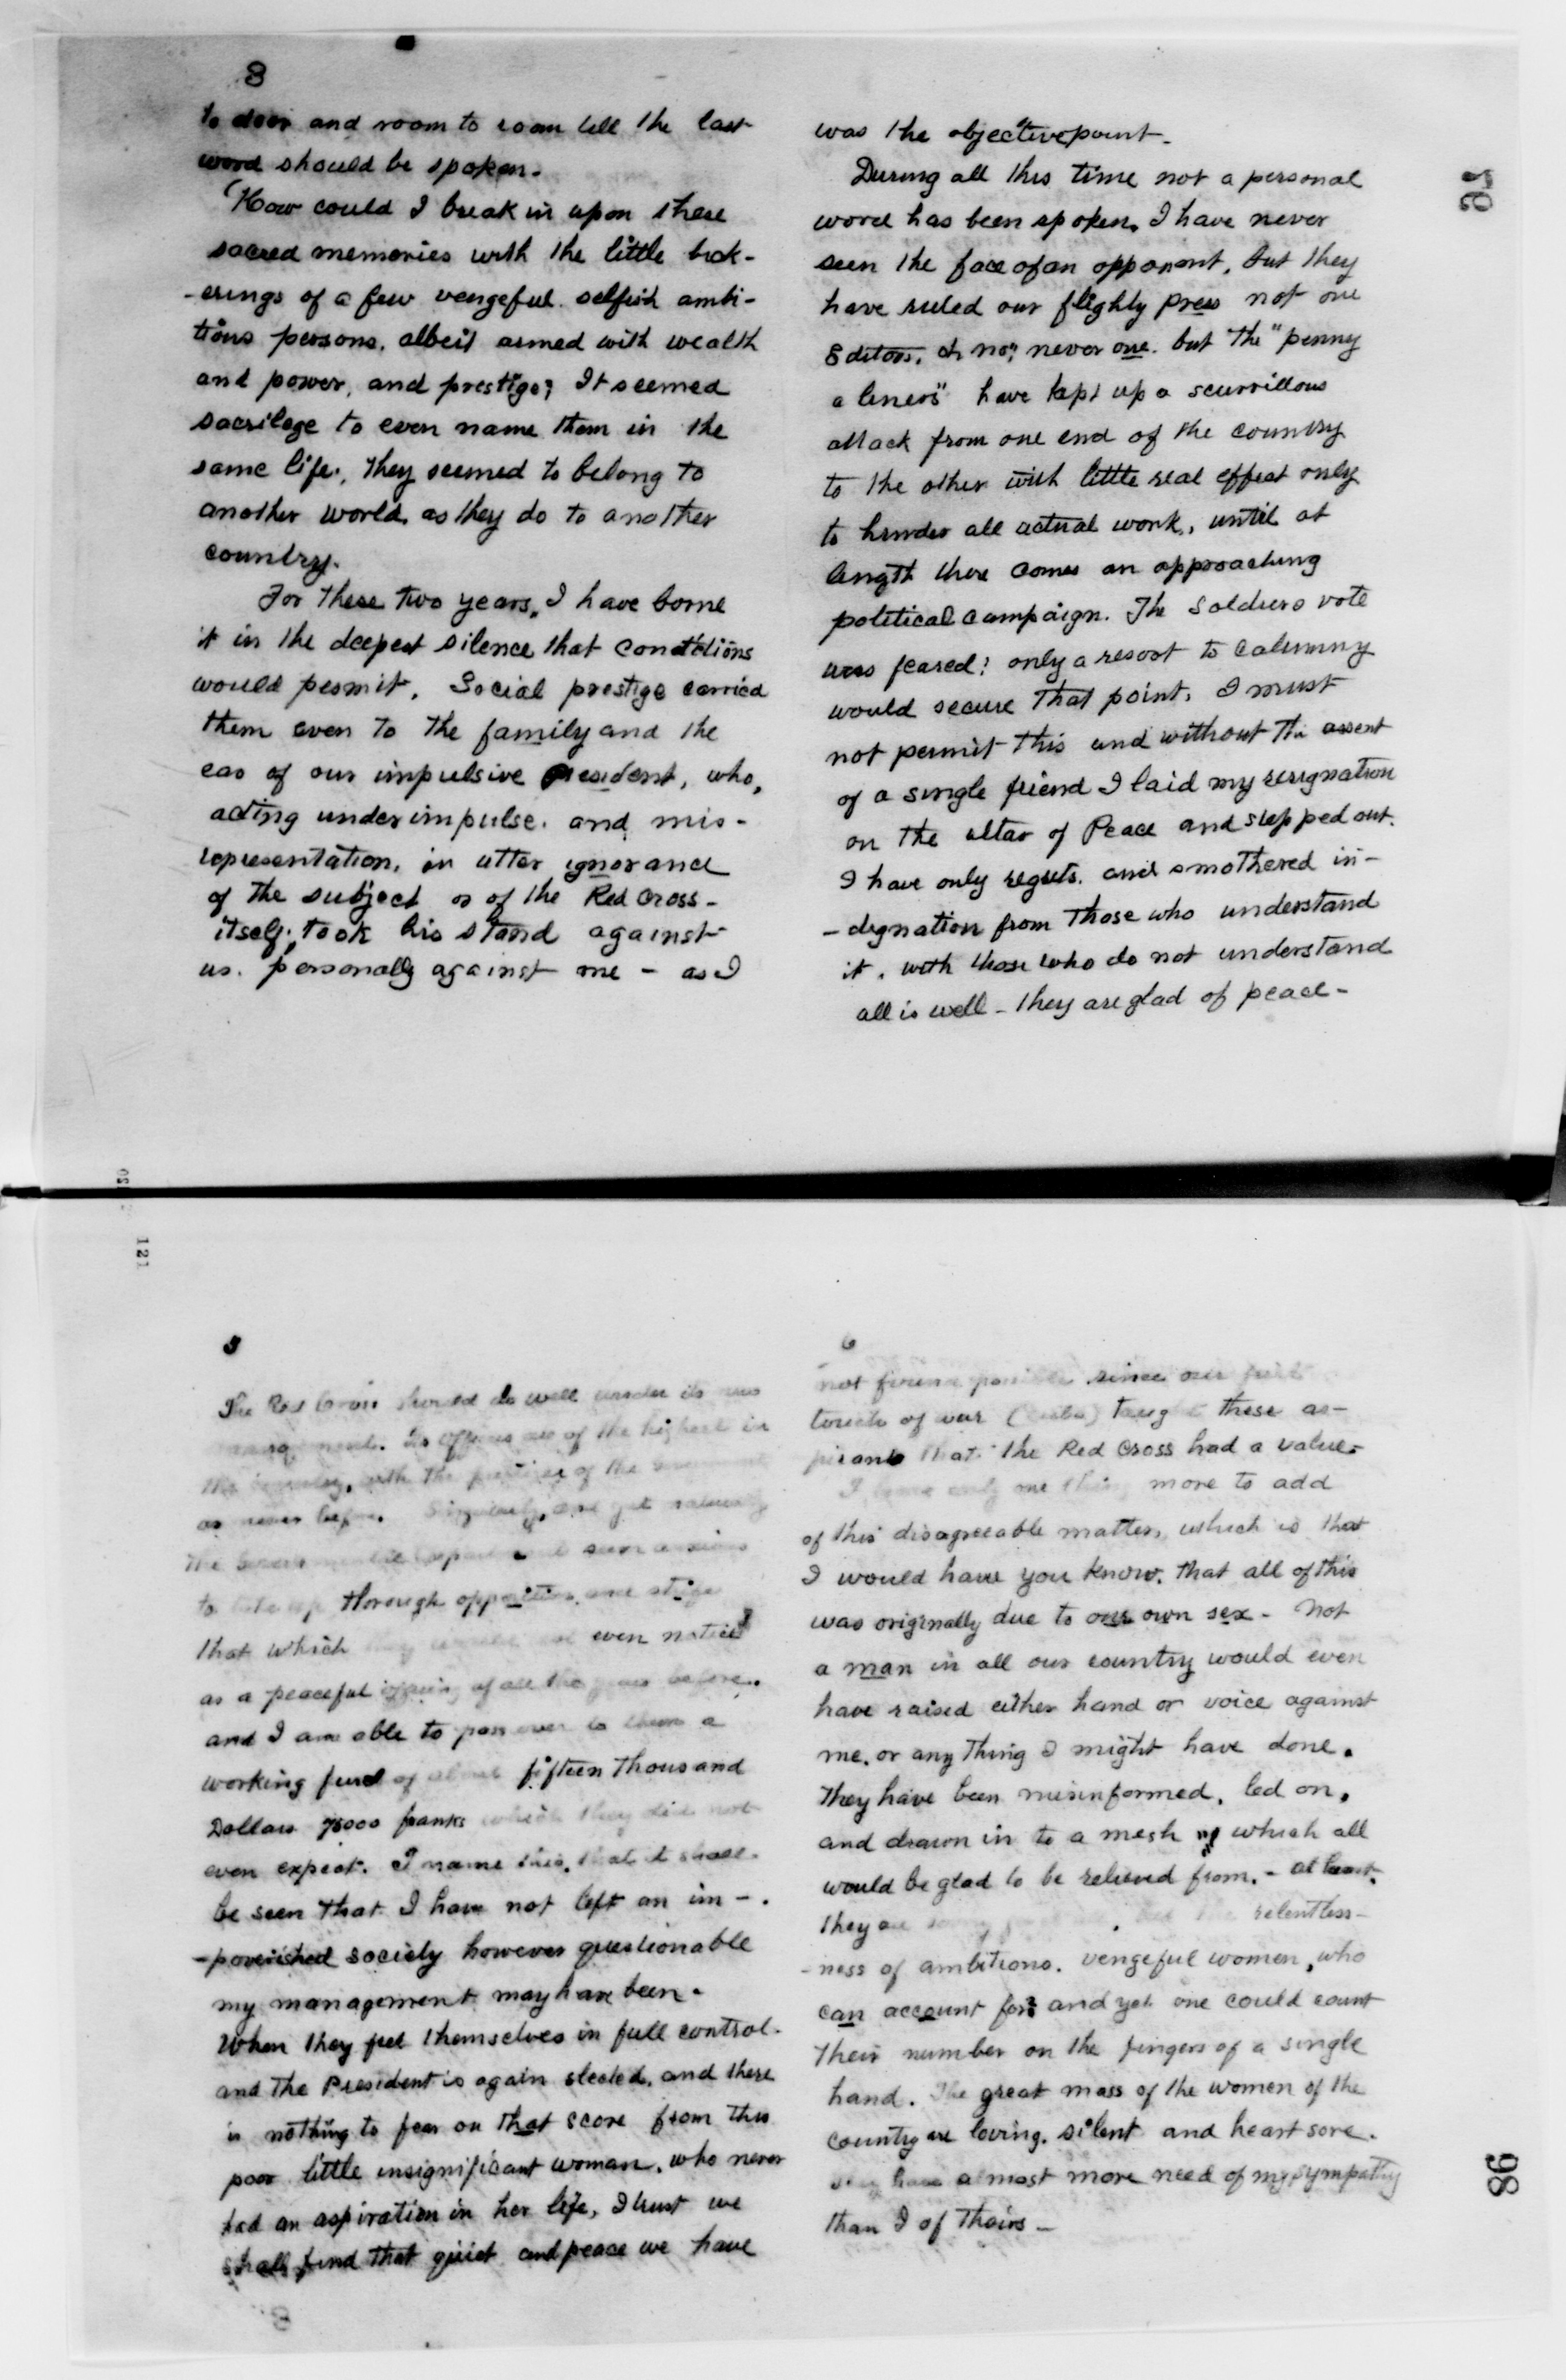 3
to door and room to room till the last
word should be spoken.
How could I break in upon these
sacred memories with the little bick-
-erings of a few vengeful selfish ambi-
tious persons, albeit armed with wealth
and power, and prestige; It seemed
sacrilege to even name them in the
same life, they seemed to belong to
another world, as they do to another
country.
For these two years, I have borne
it in the deepest silence that conditions
would permit. Social prestige carried
them even to the family and the
ear of our impulsive President, who,
acting under impulse, and mis-
representation, in utter ignorance
of the subject or of the Red Cross-
itself, took his stand against
us. personally against me - as I
was the objective point-
During all this time not a personal
word has been spoken. I have never
seen the face of an opponent, but they
have ruled our flighty press not one
Editors, oh no, never one. but the "penny
a liners" have kept up a scurrillous
attack from one end of the country
to the other with little real effect only
to hinder all actual work, until at
length there comes an approaching
political campaign. The soldiers vote
was feared: only a resort to calumny
would secure that point. I must
not permit this and without the assent
of a single friend I laid my resignation
on the altar of Peace and stepped out.
I have only regrets, and smothered in-
-dignation from those who understand
it. with those who do not understand
all is well - they are glad of peace -
26
121
5
The Red Cross should do well under its new
Its officers are of the highest in
the country, with the prestige of the Government
as never before. Singularly, and yet naturally
The Governmental seem anxious
to take up through opposition, and strife
that which they would not even notice
as a peaceful of all the years before.
and I am able to pass over to them a
working fund of about fifteen thousand
Dollars 75000 franks which they did not
even expect. I name this, that it shall
be seen that I have not left an im-
-poverished society however questionable
my management may have been.
When they feel themselves in full control.
and the President is again elected, and there
is nothing to fear on that score from this
poor little insignificant woman, who never
had an aspiration in her life, I trust we
shall find that quiet and peace we have
6
not found possible since our first
touch of war (Cuba) taught these as-
pirants that the Red Cross had a value-
I have only one thing more to add
of this disagreeable matter, which is that
I would have you know, that all of this
was originally due to our own sex - Not
a man in all our country would even
have raised either hand or voice against
me, or any thing I might have done.
They have been misinformed, led on,
and drawn in to a mesh which all
would be glad to be relieved from. - at heart
they are relentless-
-ness of ambitious, vengeful women, who
can account for? and yet one could count
their number on the fingers of a single
hand. The great mass of the women of the
country are loving, silent and heart sore.
they have almost more need of my sympathy
than I of theirs -
98